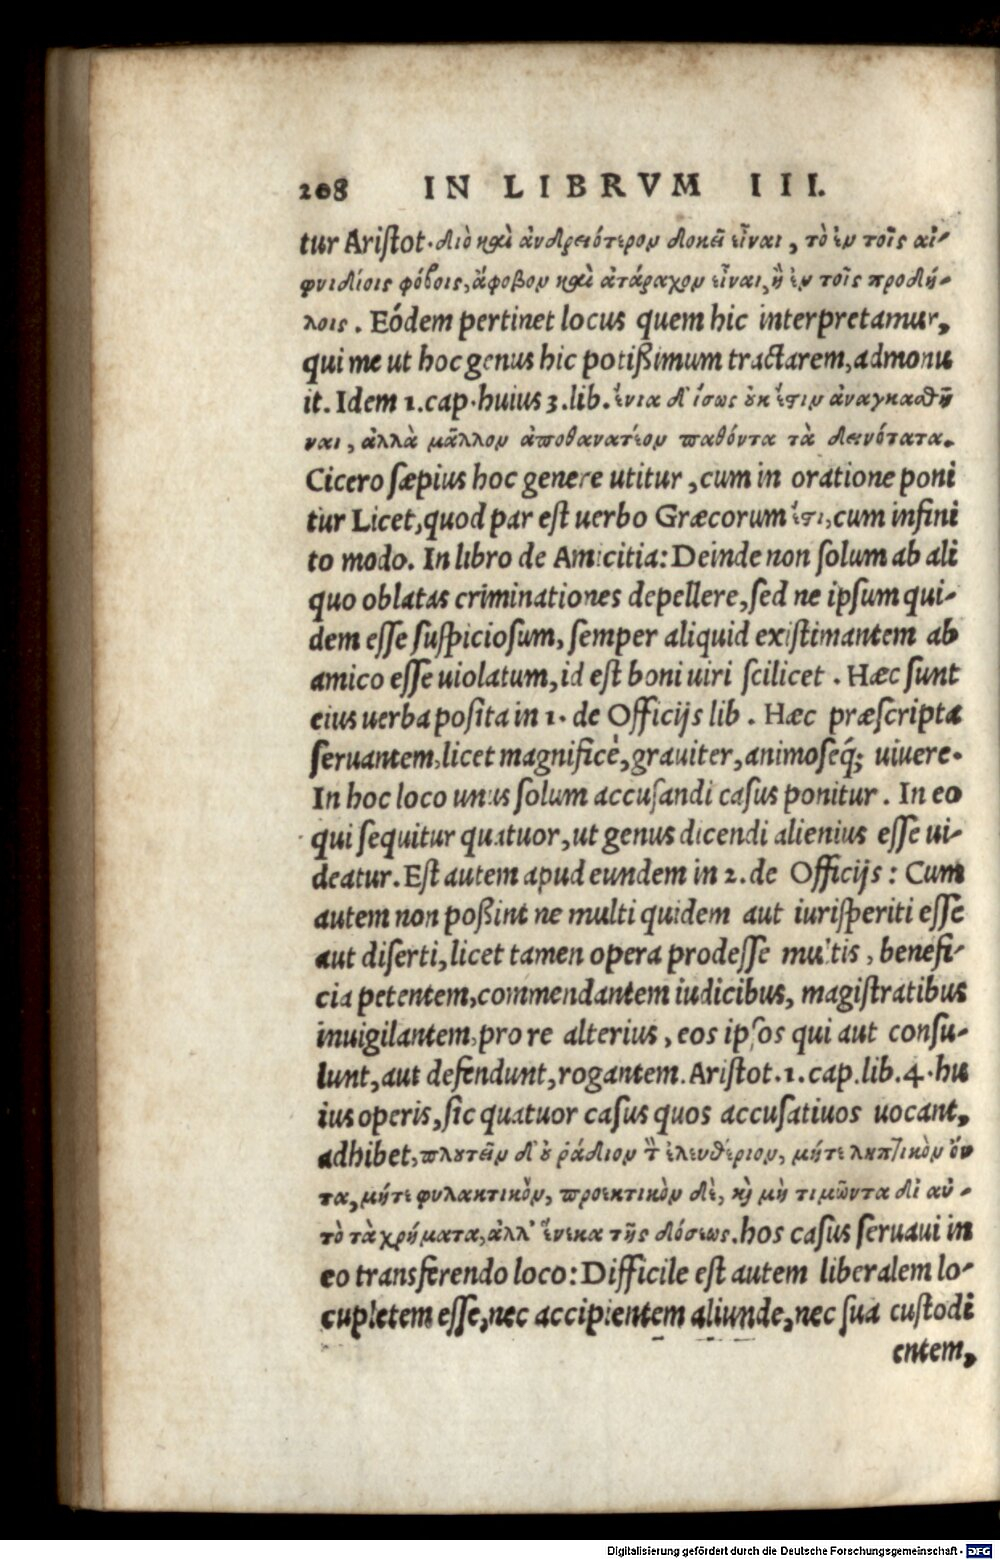 208 IN LIBRVM III.
tur Aristot. διὸ καὶ ἀνδρειότερον δοκεῖ εἶναι, τὸ ἐν τοῖς αἰ-
φνιδίοις φόβοις, ἄφοβον καὶ ἀτάραχον εἶναι, ἢ ἐν τοῖς προδή-
λοις. Eódem pertinet locus quem hic interpretamur,
qui me ut hoc genus hic potißimum tractarem, admonu
it. Idem 1. cap. huius 3. lib. ἔνια δ' ἴσως ὀκ ἔστιν ἀναγκασθῆ
ναι, ἀλλὰ μᾶλλον ἀποθανατέον παθόντα τὰ δεινότατα.
Cicero sæpius hoc genere utitur, cum in oratione poni
tur Licet, quod par est uerbo Græcorum ἔστι, cum infini
to modo. In libro de Amicitia: Deinde non solum ab ali
quo oblatas criminationes depellere, sed ne ipsum qui-
dem esse suspiciosum, semper aliquid existimantem ab
amico esse uiolatum, id est boni uiri scilicet. Hæc sunt
eius uerba posita in 1. de Officijs lib. Hæc præscripta
seruantem, licet magnificè, grauiter, animoseq́; uiuere.
In hoc loco unus solum accusandi casus ponitur. In eo
qui sequitur quatuor, ut genus dicendi alienius esse ui-
deatur. Est autem apud eundem in 2. de Officijs: Cum
autem non poßint ne multi quidem aut iurisperiti esse
aut diserti, licet tamen opera prodesse multis, benefi-
cia petentem, commendantem iudicibus, magistratibus
inuigilantem, pro re alterius, eos ipsos qui aut consu-
lunt, aut defendunt, rogantem. Aristot. 1. cap. lib. 4. hu
ius operis, sic quatuor casus quos accusatiuos uocant,
adhibet, πλουτεῖν δ' ὀ ῥάδιον τ ἐλευθέριον, μήτε ληπτικὸν ὄν
τα, μήτε φυλακτικὸν, προετικὸν δὲ, κὶ μὴ τιμῶντα δι αὐ-
τὸ τὰ χρήματα, ἀλλ' ἕνεκα τῆς δόσεως. hos casus seruaui in
eo transferendo loco: Difficile est autem liberalem lo-
cupletem esse, nec accipientem aliunde, nec sua custodi
entem,
Digitalisierung gefördert durch die Deutsche Forschungsgemeinschaft - DFG